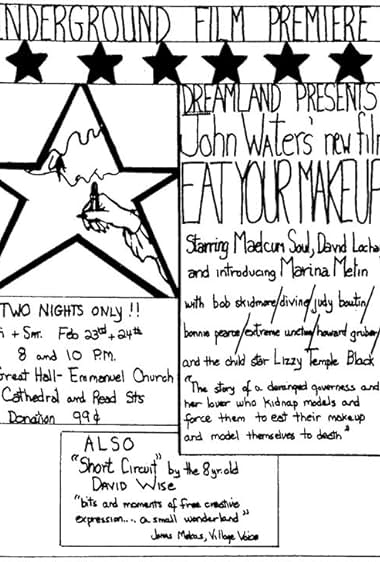 UNDERGROUND FILM PREMIERE
DREAMLAND PRESENTS
John Waters' new film
EAT YOUR MAKEUP
Starring Maelcum Soul, David Locha
and introducing Marina Melin
with bob skidmore/divine/judy boutin/
bonnie pearce/extreme unction/howard gruber/
and the child star Lizzy Temple Black
"The story of a deranged governess and
her lover who kidnap models and
force them to eat their makeup
and model themselves to death"
TWO NIGHTS ONLY !!
i + Sat. Feb 23rd + 24th
8 and 10 P.M.
Great Hall - Emmanuel Church
Cathedral and Read Sts
Donation 99¢
ALSO
"Short Circuit" by the 8 yr. old
DAVID WISE
"bits and moments of free creative
expression... a small wonderland"
Jonas Mekas, Village Voice